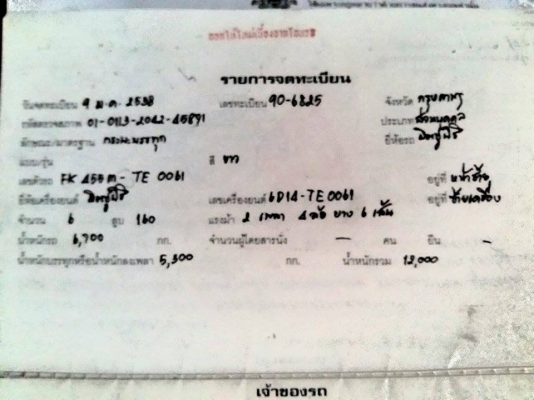 รายการจดทะเบียน
วันจดทะเบียน 9 ม.ค. 2538 เลขทะเบียน 90-6825 จังหวัด กรุงเทพฯ
รหัสตรวจสภาพ 01-0113-2042-45891 ประเภท ส่วนบุคคล
ลักษณะ/มาตรฐาน กระบะบรรทุก ยี่ห้อรถ มิตซูบิชิ
แบบ/รุ่น สี ขาว
เลขตัวรถ FK 455 - TE 0061 อยู่ที่ หน้าซ้าย
ยี่ห้อเครื่องยนต์ มิตซูบิชิ เลขเครื่องยนต์ 6D14-TE0061 อยู่ที่ ซ้ายเครื่อง
จำนวน 6 สูบ 160 แรงม้า 2 เพลา 4 ล้อ ยาง 6 เส้น
น้ำหนักรถ 6,700 กก. จำนวนผู้โดยสารนั่ง - คน ยืน -
น้ำหนักบรรทุกหรือน้ำหนักลงเพลา 5,300 กก. น้ำหนักรวม 12,000
เจ้าของรถ